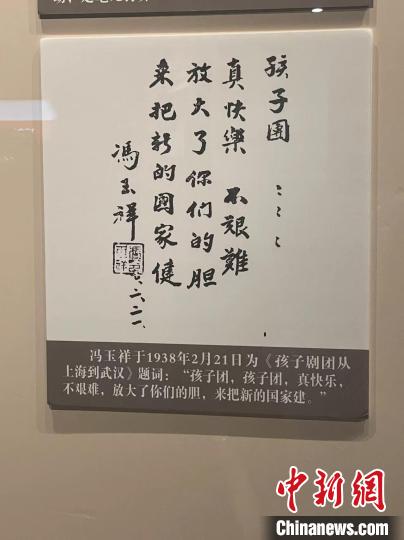 孩子團 〻〻〻
真快樂 不艱難
放大了你們的胆
来把新的國家健
馮玉祥
冯玉祥于1938年2月21日为《孩子剧团从
上海到武汉》题词：“孩子团，孩子团，真快乐，
不艰难，放大了你们的胆，来把新的国家建。”
中新网
Chinanews.com